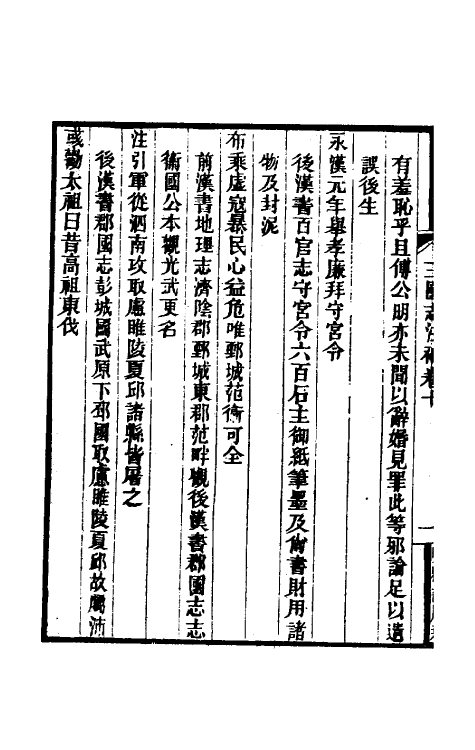 三國志注補卷十
有羞恥乎且傅公明亦未聞以辭婚見罪此等邪論足以遺
誤後生
永漢元年舉孝廉拜守宮令
後漢書百官志守宮令六百石主御紙筆墨及尙書財用諸
物及封泥
布乘虛寇暴民心益危唯鄄城范衞可全
前漢書地理志濟陰郡鄄城東郡范畔觀後漢書郡國志志
衞國公本觀光武更名
注引軍從泗南攻取慮睢陵夏邱諸縣皆屠之
後漢書郡國志彭城國武原下邳國取慮睢陵夏邱故屬沛
或勸太祖曰昔高祖東伐